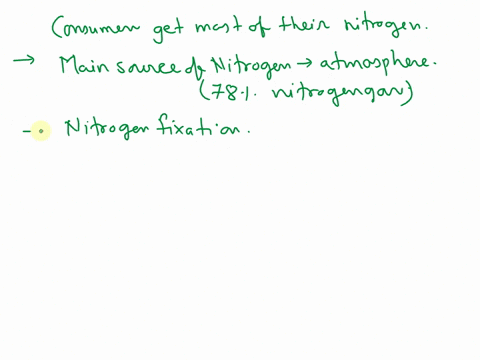 Consumer get most of their nitrogen.
→ Main source of Nitrogen → atmosphere.
(78%. nitrogen gas)
→ Nitrogen fixation.